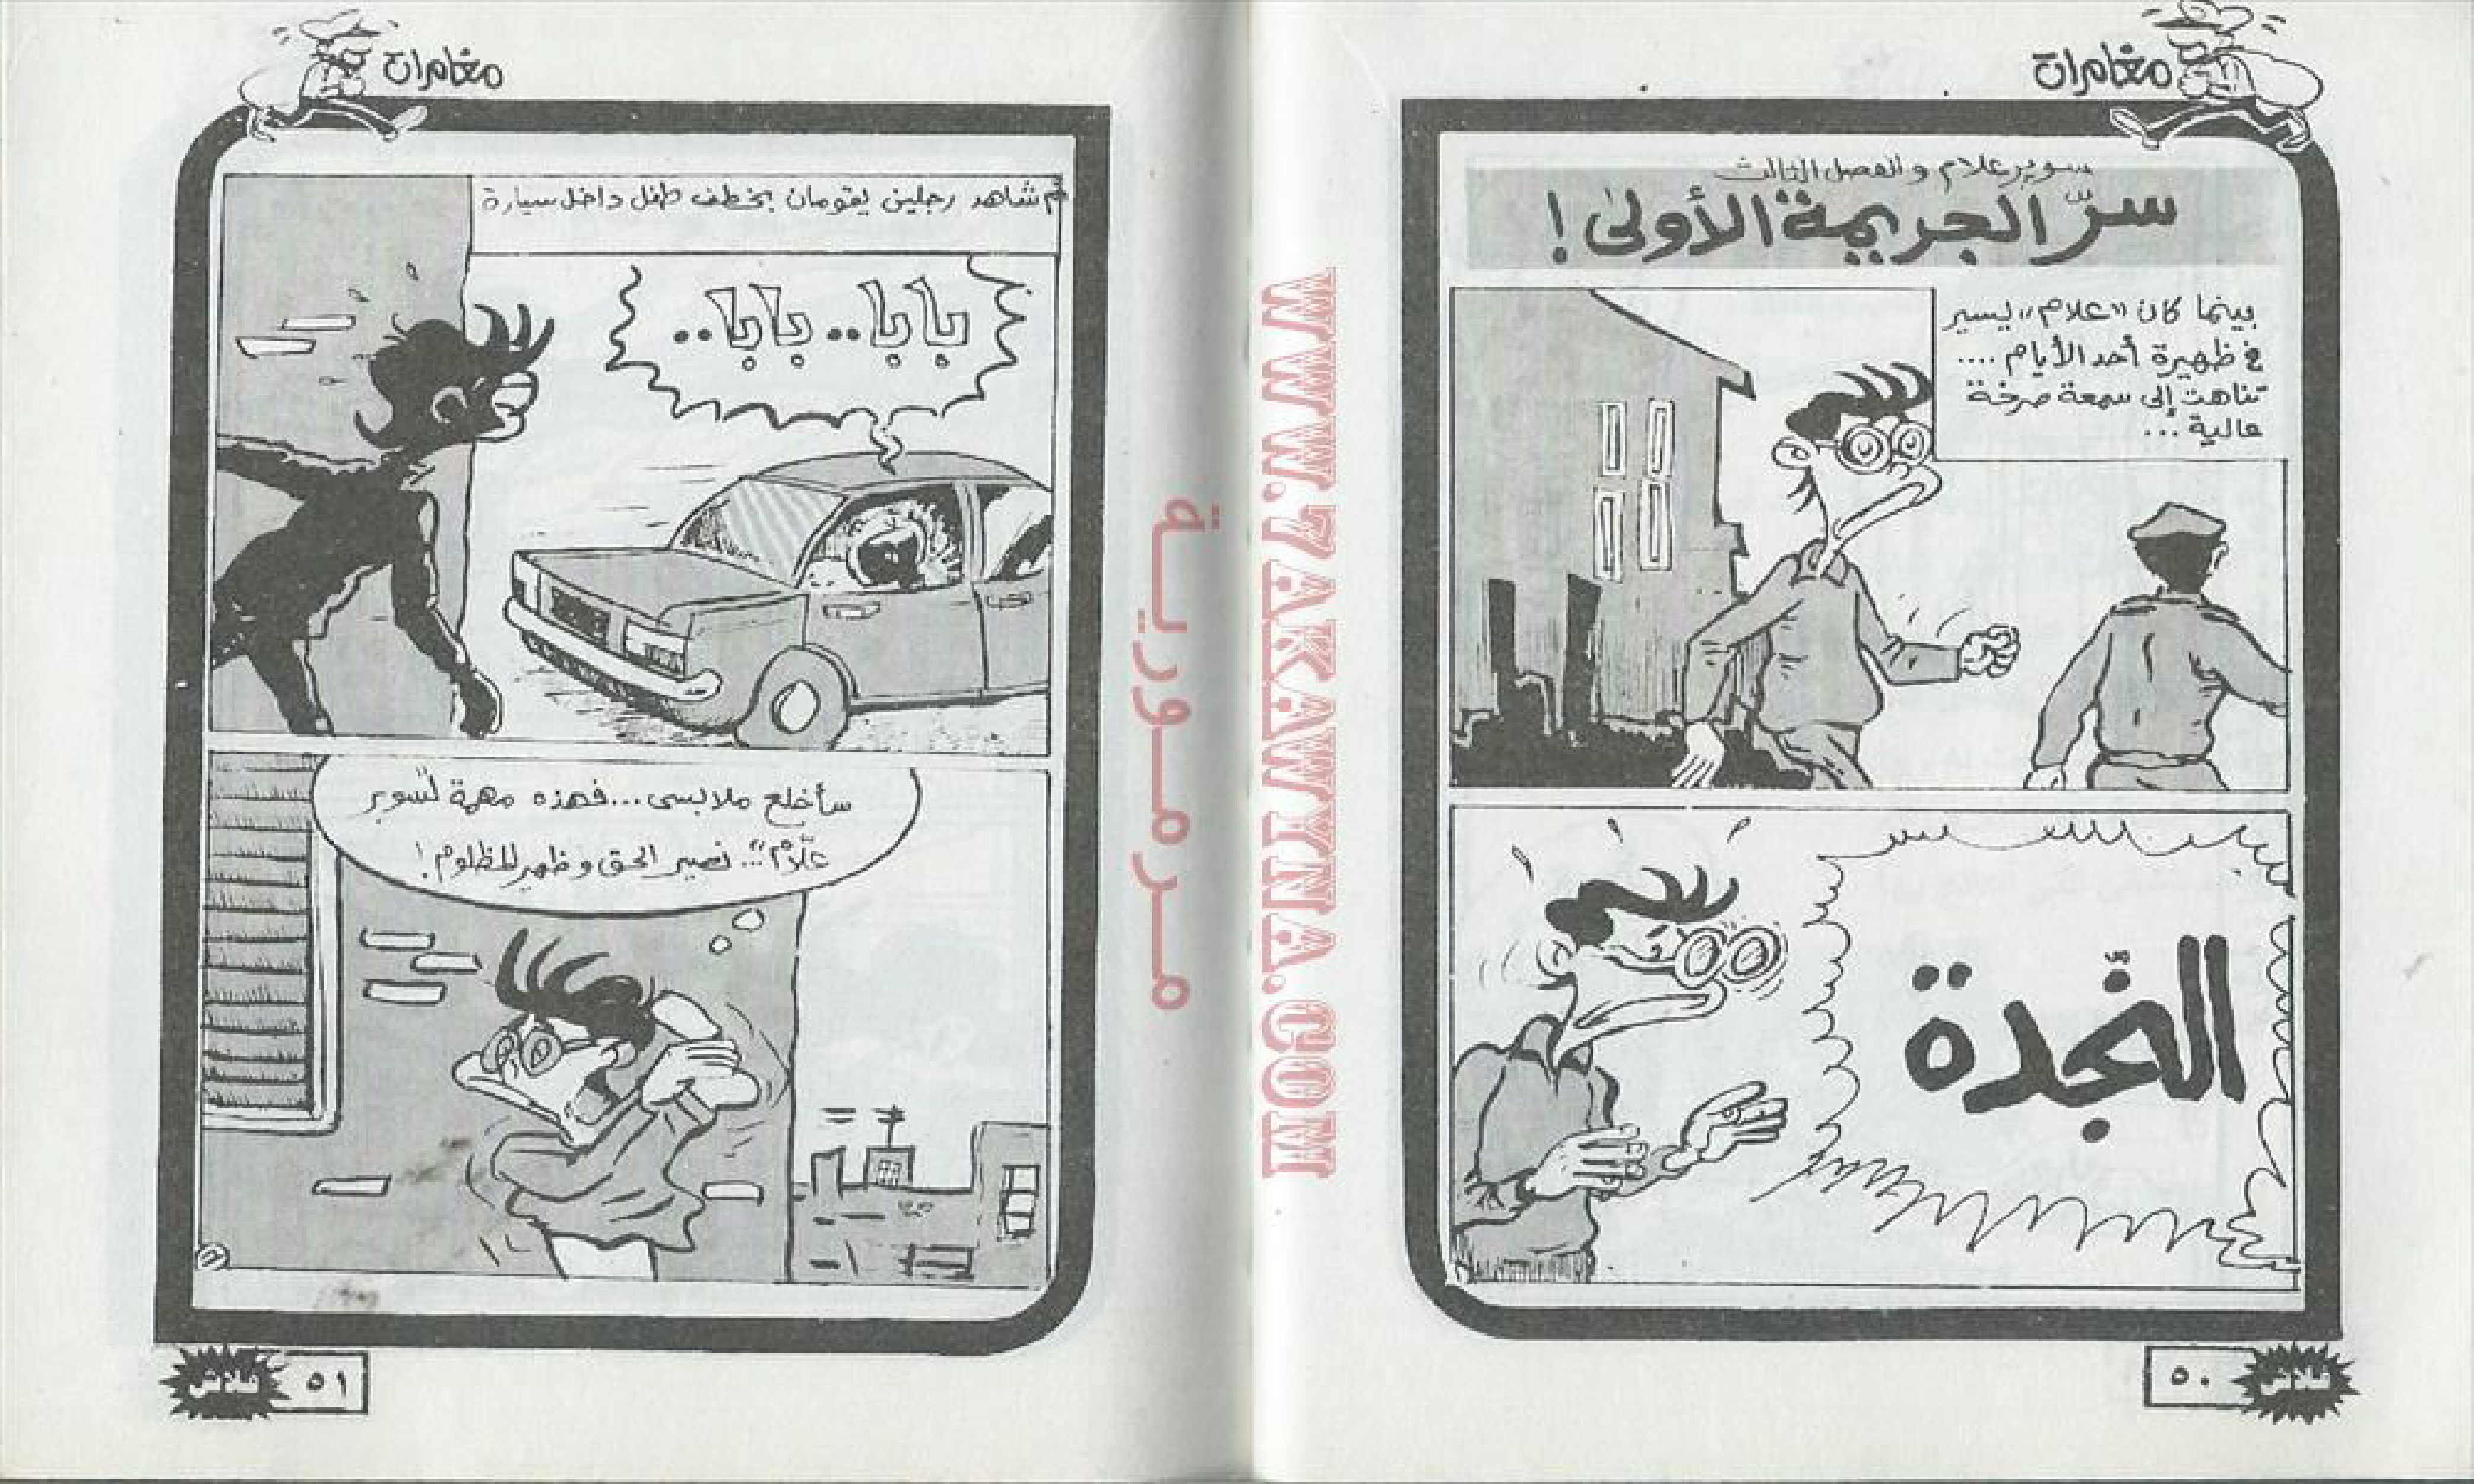 مغامرات
سوبر علام و الفصل الثالث
سرّ الجريمة الأولىٰ!
بينما كان "علام" يسير
في ظهيرة أحد الأيام ....
تناهت إلى سمعة صرخة
عالية ...
النّجدة
٥٠
فلاش
مغامرات
ثم شاهد رجلين يقومان بخطف طفل داخل سيارة
بابا.. بابا..
سأخلع ملابسى... فهذه مهمة لـ"سوبر
علّام"... نصير الحق و ظهير المظلوم!
٥١
فلاش
مرمورية
WWW.7AKAWINA.COM